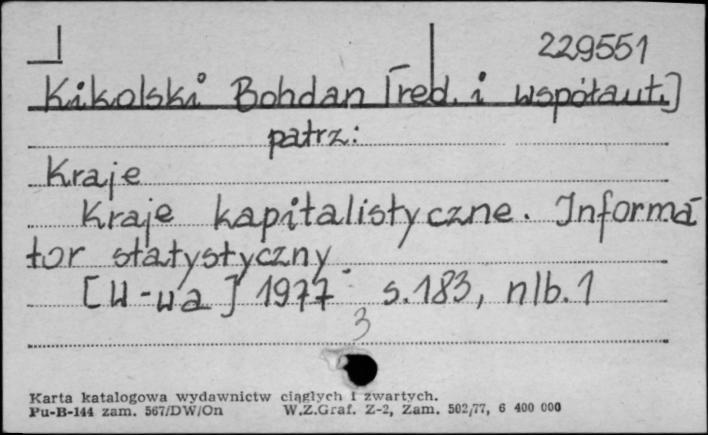 229551
Kikolski Bohdan [red. i współaut.]
patrz:
Kraje
Kraje kapitalistyczne. Informa-
tor statystyczny.
[W-wa] 1977 s.183, nlb.1
3
Karta katalogowa wydawnictw ciągłych i zwartych.
Pu-B-144 zam. 567/DW/On W.Z.Graf. Z-2, Zam. 502/77, 6 400 000